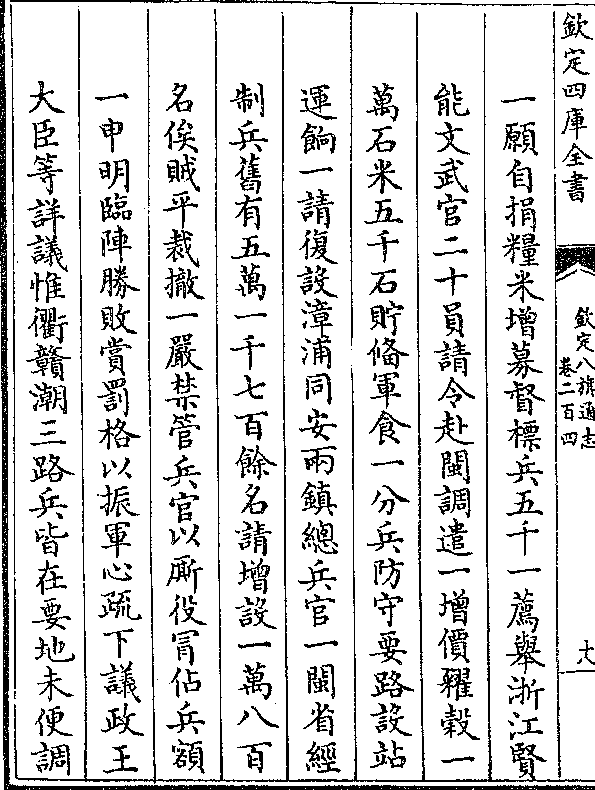 欽定四庫全書
欽定八旗通志
卷二百四
十八
一願自捐糧米增募督標兵五千一薦舉浙江賢
能文武官二十員請令赴閩調遣一增價糴穀一
萬石米五千石貯備軍食一分兵防守要路設站
運餉一請復設漳浦同安兩鎮總兵官一閩省經
制兵舊有五萬一千七百餘名請增設一萬八百
名俟賊平裁撤一嚴禁管兵官以厮役冒佔兵額
一申明臨陣勝敗賞罰格以振軍心疏下議政王
大臣等詳議惟衢贛潮三路兵皆在要地未便調